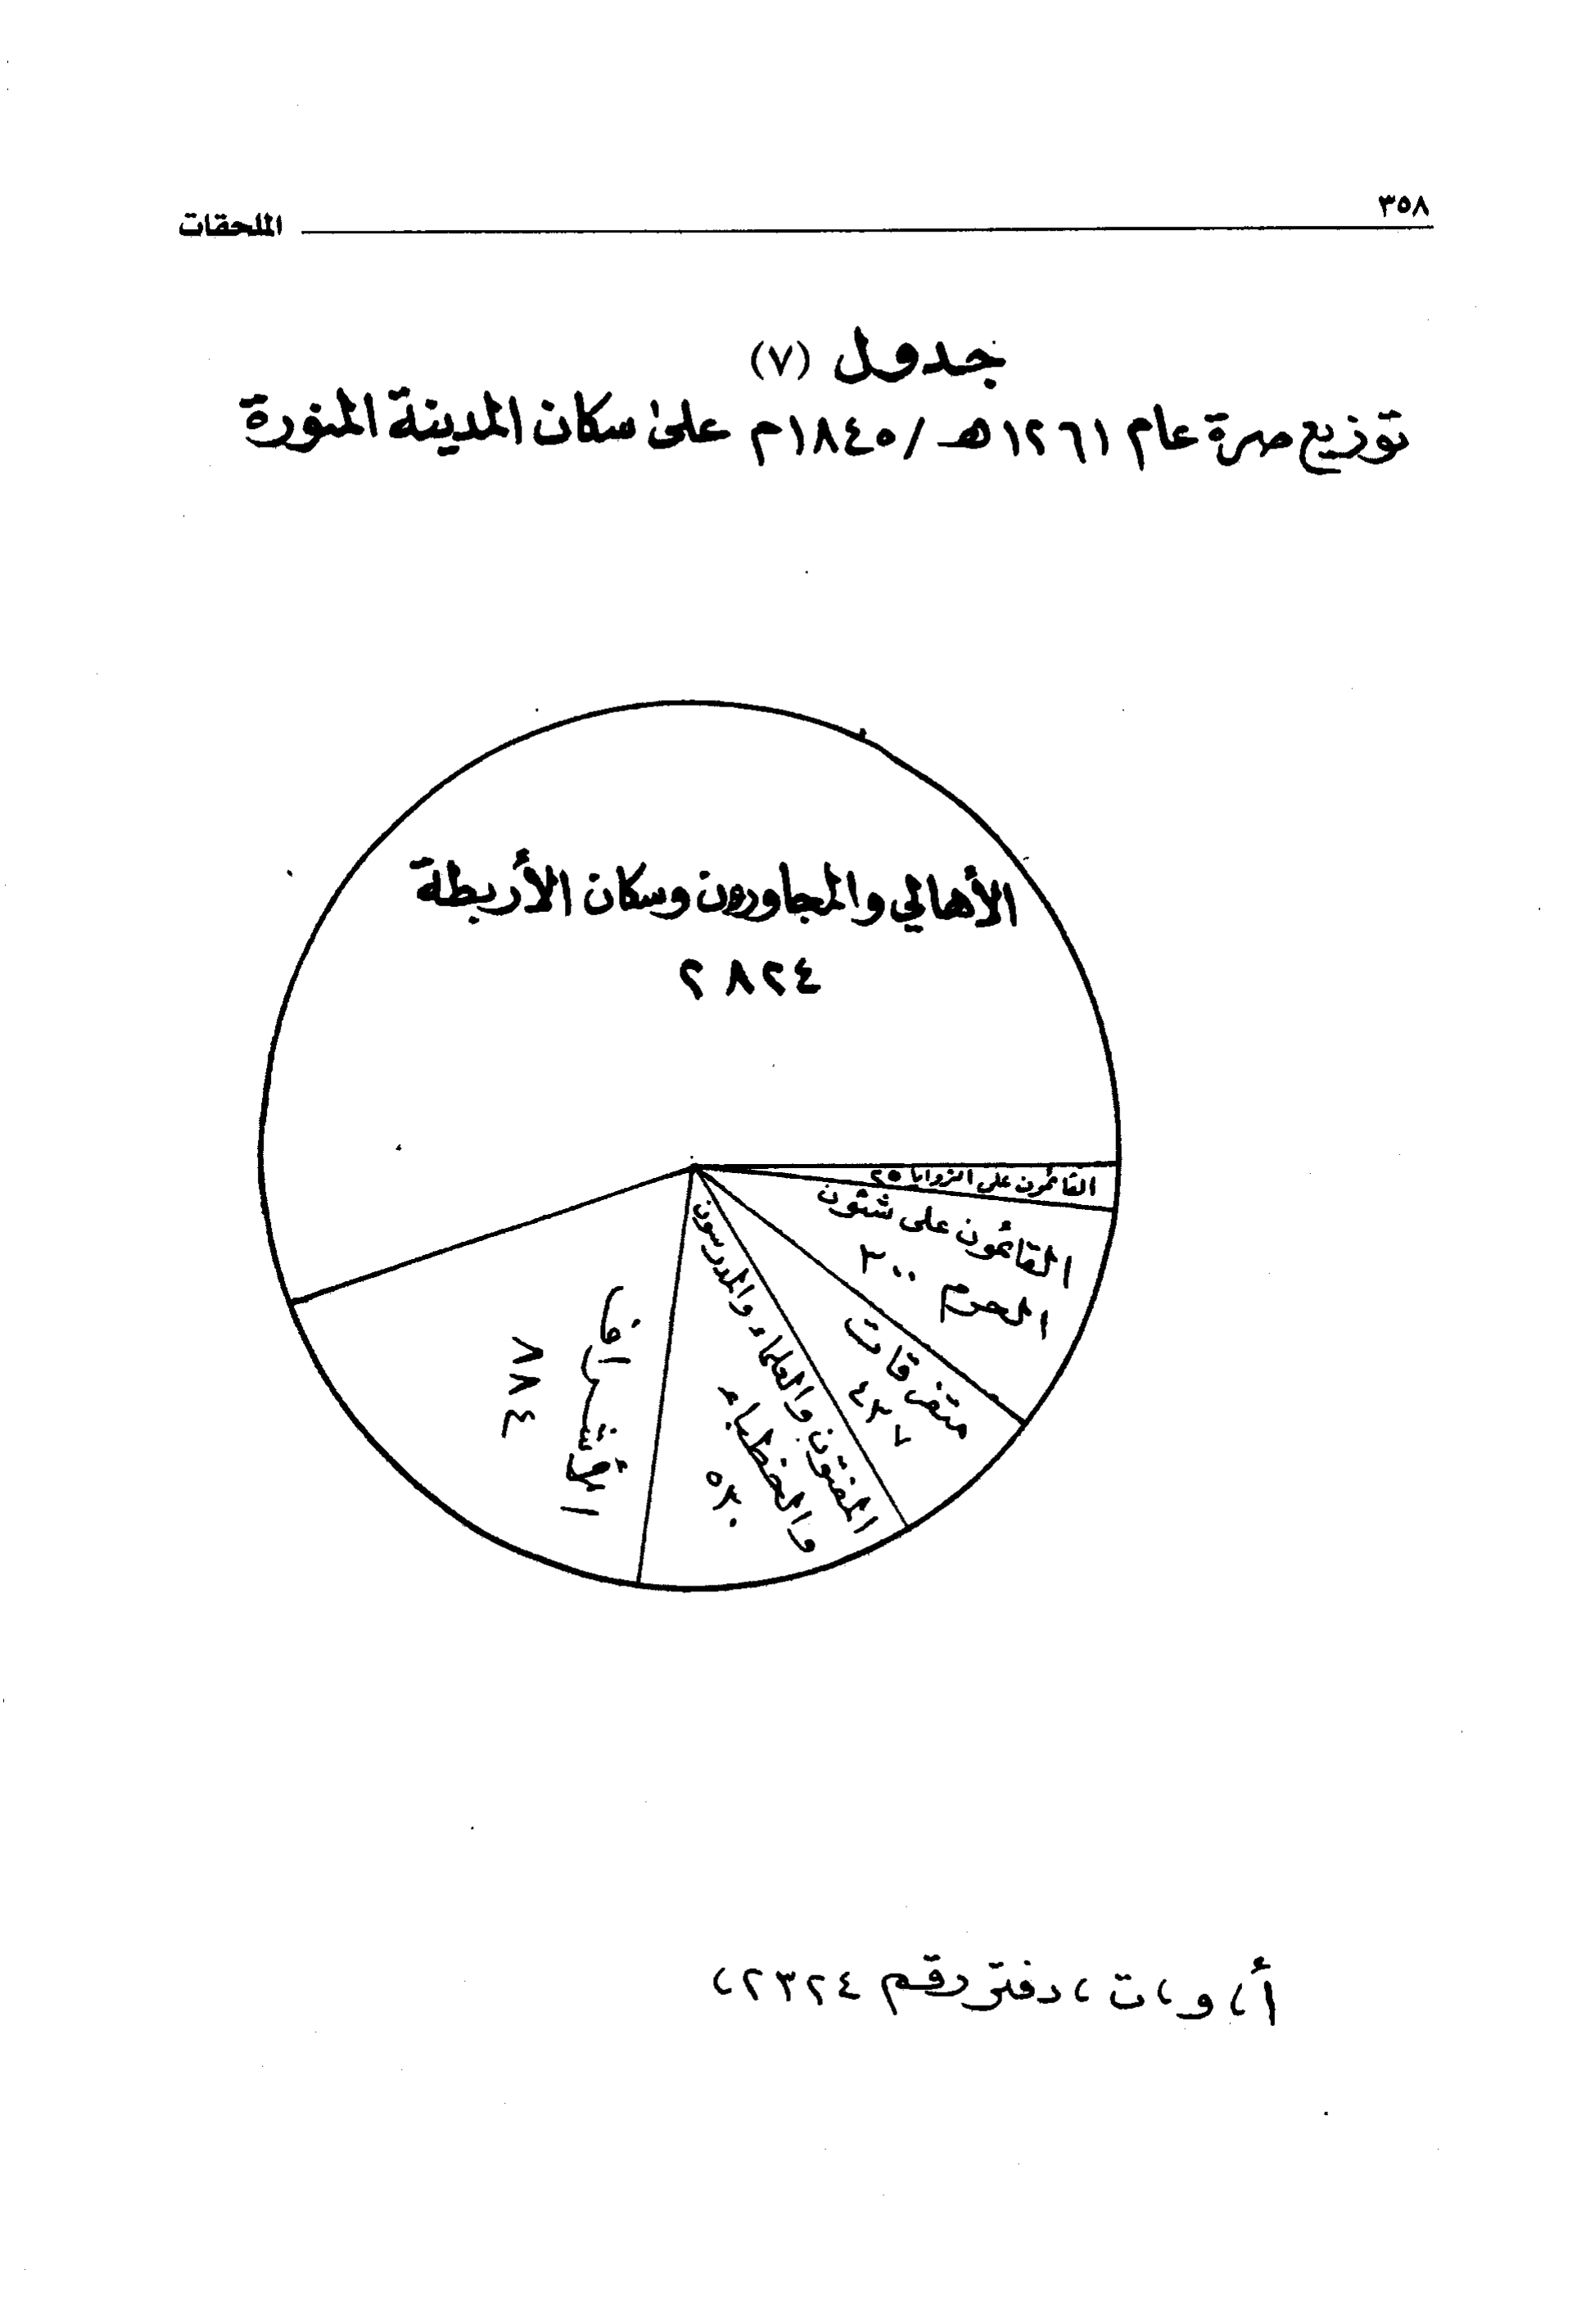 ٣٥٨
الملحقات
جدول (٧)
توزيع صرة عام ١٢٦١ هـ / ١٨٤٥م على سكان المدينة المنورة
الأهالي والمجاورون وسكان الأربطة
٢٨٢٤
القائمون على الزوايا ٢٥
القائمون على شئون
الحرم ٣٠٠
متفرقات
المفتون والعلماء والمدرسون
والخطباء
الأشراف
٨٨٤
أ، و، ت، دفتر رقم ٢٣٢٤،